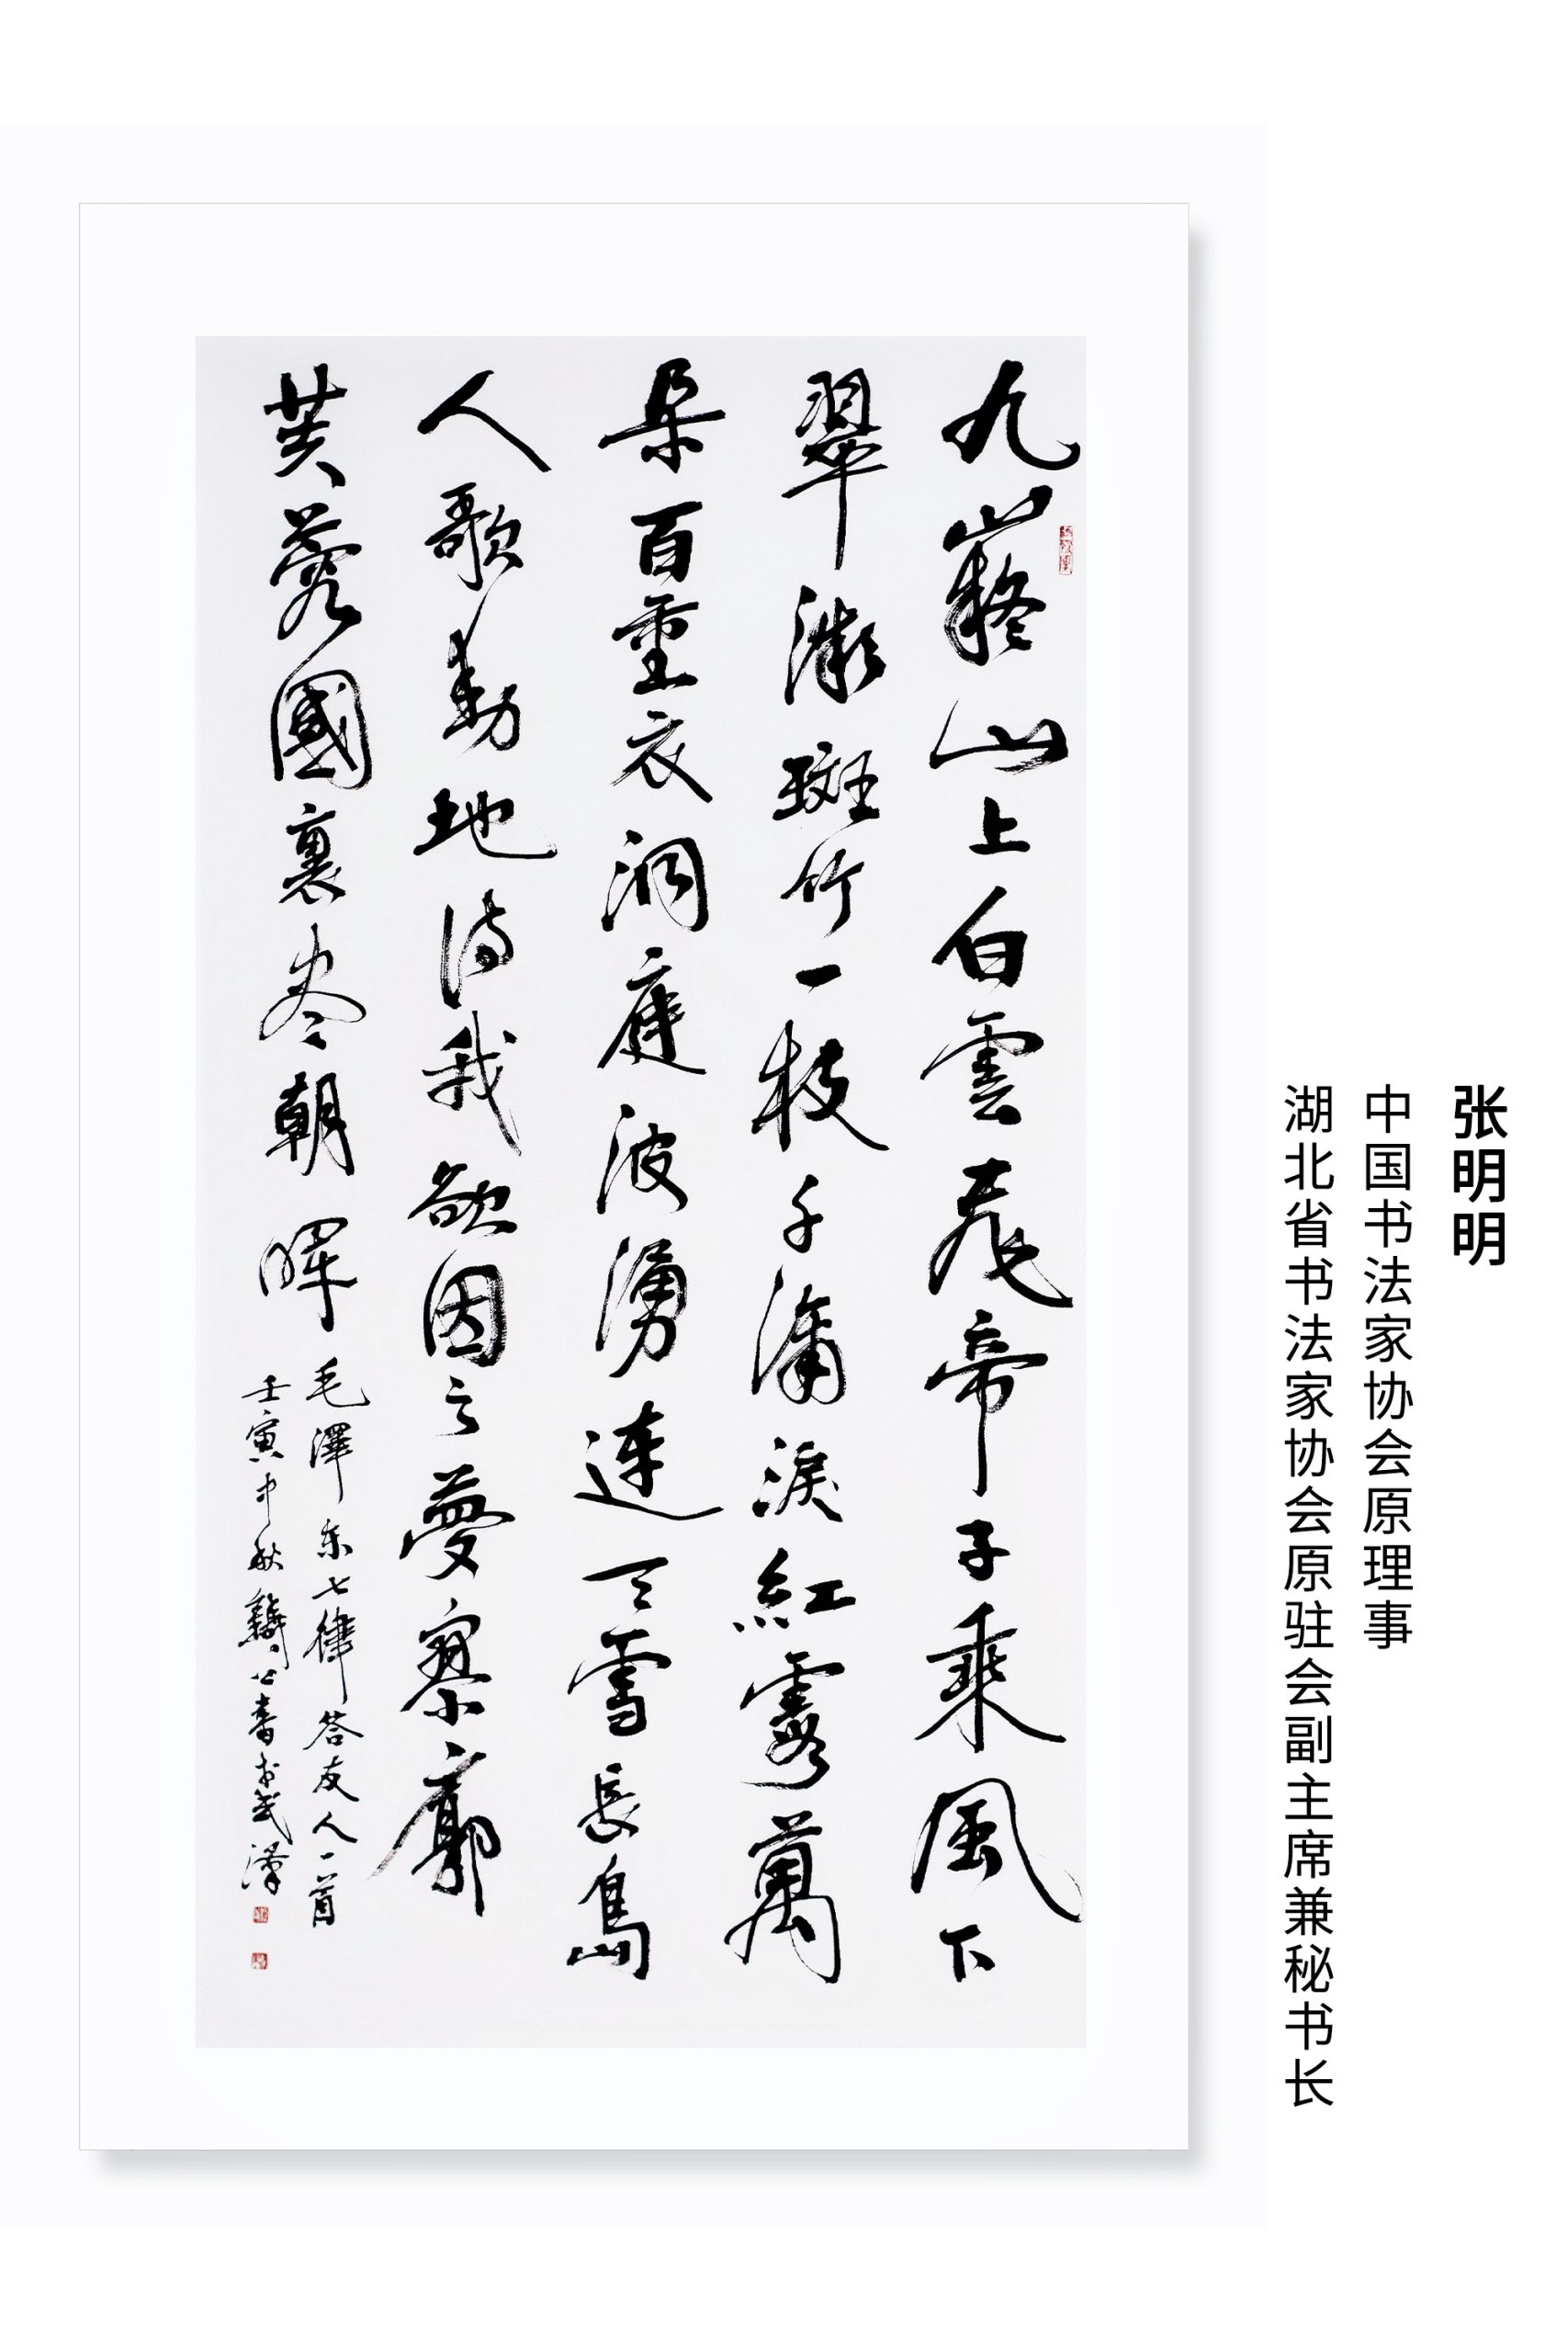 张明明
中国书法家协会原理事
湖北省书法家协会原驻会副主席兼秘书长
九嶷山上白雲飛帝子乘風下
翠微斑竹一枝千滴淚紅霞萬
朵百重衣洞庭波湧連天雪長島
人歌動地詩我欲因之夢寥廓
芙蓉國裏尽朝暉
毛澤东七律答友人一首
壬寅中秋公書於武漢